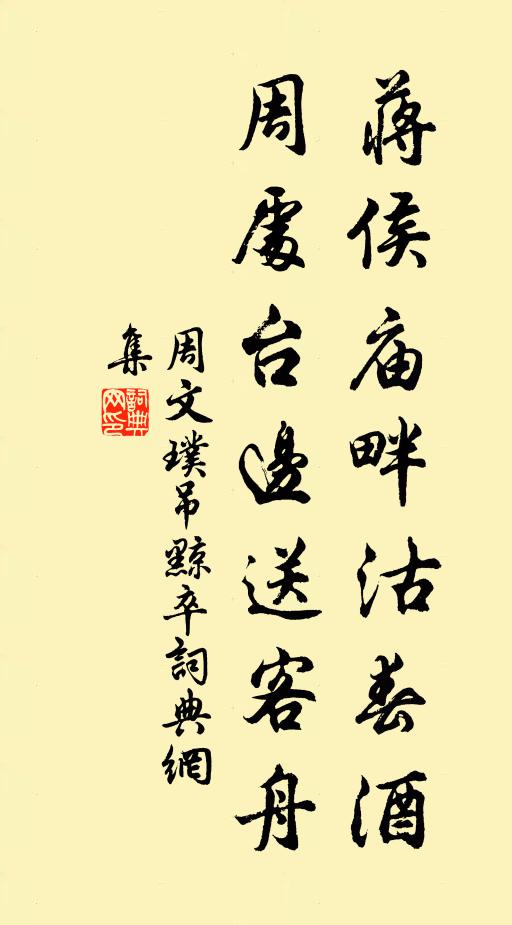 蔣侯庙畔沽春酒
周處台邊送客舟
周文璞吊黥卒詞典網
集
詞典
网印